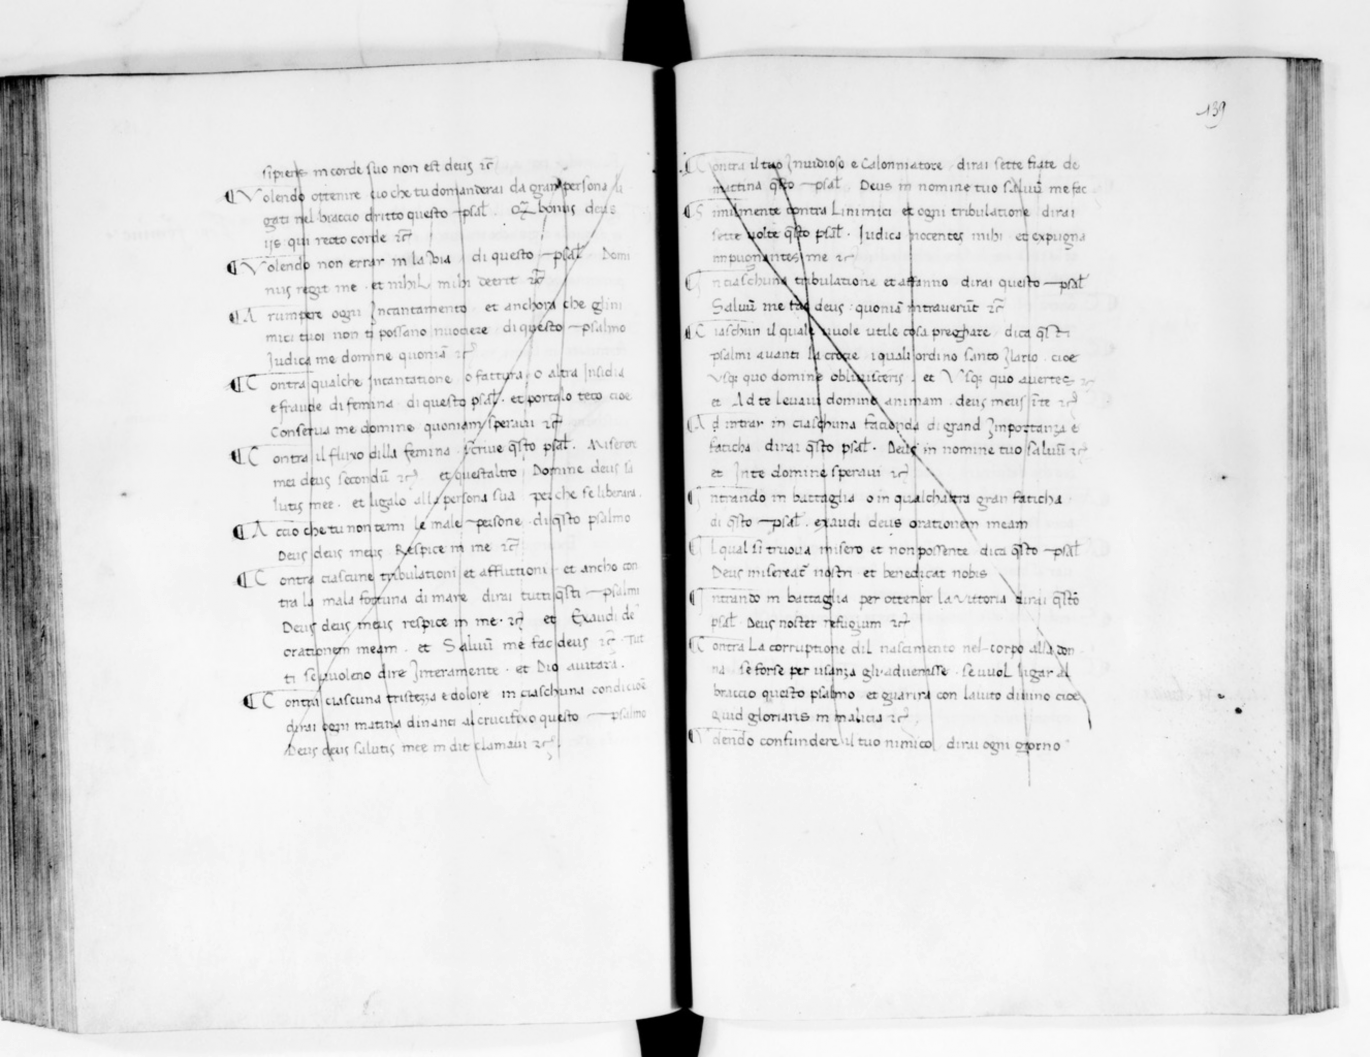 sipiens in corde suo non est deus ⁊c̃
¶ Volendo ottenire cio che tu domanderai da gran persona li
gati nel braccio dritto questo psal̃. bonus deus
iis qui recto corde ⁊c̃
¶ Volendo non errar in la via di questo psal̃ Domi
nus regit me. et nihil mihi deerit ⁊c̃
¶ A rumpere ogni Incantamento et anchora che glini
mici tuoi non ti possano nuocere di questo psalmo
Judica me domine quoniã ⁊c̃
¶ Contra qualche Incantatione o fattura. o altra Insidia
e fraude di femina di questo psal̃. et portalo teco cioe
Conserva me domine quoniam speravi ⁊c̃
¶ Contra il fluxo dilla femina scrive q̃sto psal̃. Miserere
mei deus secondũ ⁊c̃ et questaltro Domine deus sa
lutis mee. et ligalo alla persona sua perche se liberara.
¶ Accio che tu non temi le male persone. di q̃sto psalmo
Deus deus meus Respice in me ⁊c̃
¶ Contra ciascune tribulationi et affiittioni. et ancho con
tra la mala fortuna di mare dirai tutti q̃sti psalmi
Deus deus meus respice in me. ⁊c̃ et Exaudi de
orationem meam. et Salvũ me fac deus ⁊c̃ Tut
ti se voleno dire Interamente. et Dio aiutara.
¶ Contra ciascuna tristezza e dolore in ciaschuna condicioẽ
dirai ogni matina dinanci al crucifixo questo psalmo
Deus deus salutis mee in die clamavi ⁊c̃.
139
¶ Contra il tuo Invidioso e Calonniatore dirai sette fiate de
mattina q̃sto psal̃ Deus in nomine tuo salvũ me fac
¶ Similmente contra Linimici et ogni tribulatione dirai
sette volte q̃sto psal̃. Iudica nocentes mihi et expugna
impugnantes me ⁊c̃
¶ In ciaschuna tribulatione et affanno dirai questo psal̃
Salvũ me fac deus. quoniã intraverũt ⁊c̃
¶ Ciaschun il quale vuole utile cosa preghare dica q̃sti
psalmi avanti la croce i quali ordino santo Ilario. cioe
Usq̃ quo domine oblivisceris. et Usq̃ quo avertes ⁊c̃
et Ad te levavi domine animam. deus meus ĩ te ⁊c̃
¶ Ad intrar in ciaschuna facienda di grand Importanza e
faticha dirai q̃sto psal̃. Deus in nomine tuo salvũ ⁊c̃
et Inte domine speravi ⁊c̃
¶ Intrando in battaglia o in qualchaltra gran faticha
di q̃sto psal̃. exaudi deus orationem meam
¶ Il qual si truova misero et non possente dica q̃sto psal̃
Deus misereat̃ nostri et benedicat nobis
¶ Intrando in battaglia per ottener la vittoria dirai q̃sto
psal̃ Deus noster refugium ⁊c̃
¶ Contra La corruptione dil nascimento nel corpo alla don
na. se forse per usanza gli advenesse. se vuol ligar al
braccio questo psalmo et guarira con laiuto divino cioe
Quid gloriaris in malicia ⁊c̃
¶ Volendo confundere il tuo nimico dirai ogni giorno